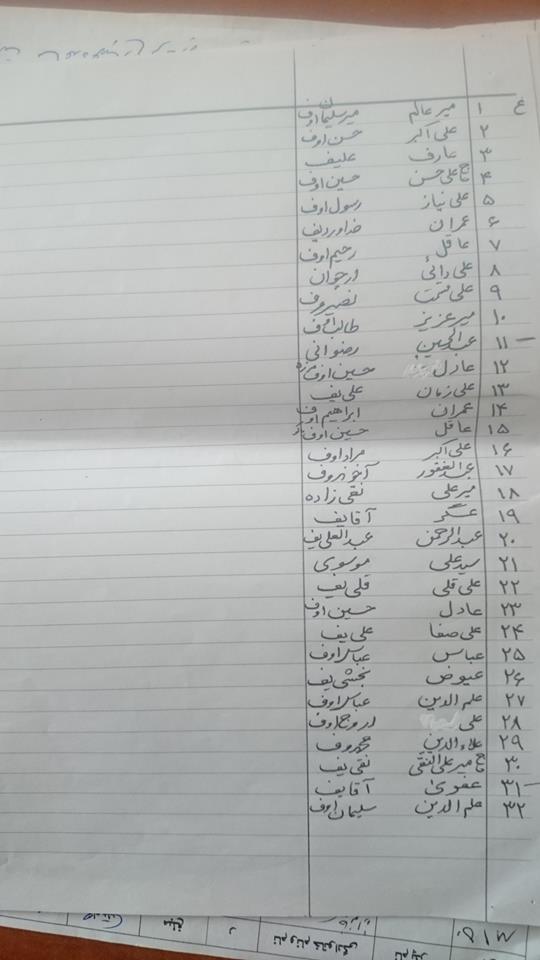 ع
۱ میر عالم میرسلیمان اوف
۲ علی اکبر حسن اوف
۳ عارف علیف
۴ حاج علی حسن حسین اوف
۵ علی نیاز رسول اوف
۶ عمران خداوردیف
۷ عاقل رحیم اوف
۸ علی دائی ارجوان
۹ علی قسمت نصیروف
۱۰ میر عزیز طالب اوف
۱۱ عبدالحسین رضوانی
۱۲ عادل حسین اوف
۱۳ علی زمان علی یف
۱۴ عمران ابراهیم اوف
۱۵ عاقل حسین اوف
۱۶ علی اکبر مراد اوف
۱۷ عبدالغفور آخوندوف
۱۸ میر علی نقی زاده
۱۹ عسگر آقایف
۲۰ عبدالرحمن عبدالعلی یف
۲۱ سید علی موسوی
۲۲ علی قلی قلی یف
۲۳ عادل حسین اوف
۲۴ علی صفا علی یف
۲۵ عباس عباس اوف
۲۶ عیوض بخشی یف
۲۷ علم الدین عباس اوف
۲۸ علی اوروج اوف
۲۹ علاءالدین محمدوف
۳۰ حاج میر علی النقی نقی یف
۳۱ عفوی آقایف
۳۲ علم الدین سلیمان اوف